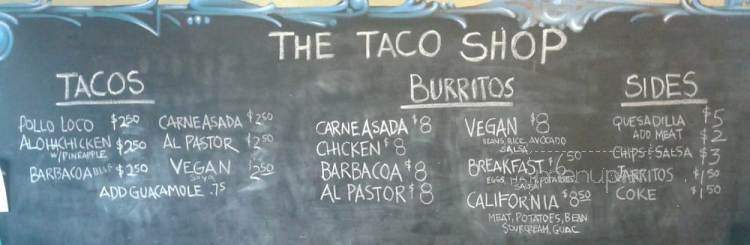 THE TACO SHOP
TACOS
POLLO LOCO $2.50
ALOHA CHICKEN $2.50
W/PINEAPPLE
BARBACOA $2.50
CARNE ASADA $2.50
AL PASTOR $2.50
VEGAN $2.50
SOYA
ADD GUACAMOLE .75
BURRITOS
CARNE ASADA $8
CHICKEN $8
BARBACOA $8
AL PASTOR $8
VEGAN $8
BEANS, RICE, AVOCADO
SALSA
BREAKFAST $6.50
EGGS, POTATOES,
SALSA
CALIFORNIA $8.50
MEAT, POTATOES, BEAN
SOUR CREAM, GUAC
SIDES
QUESADILLA $5
ADD MEAT $2
CHIPS & SALSA $3
JARRITOS $1.50
COKE $1.50